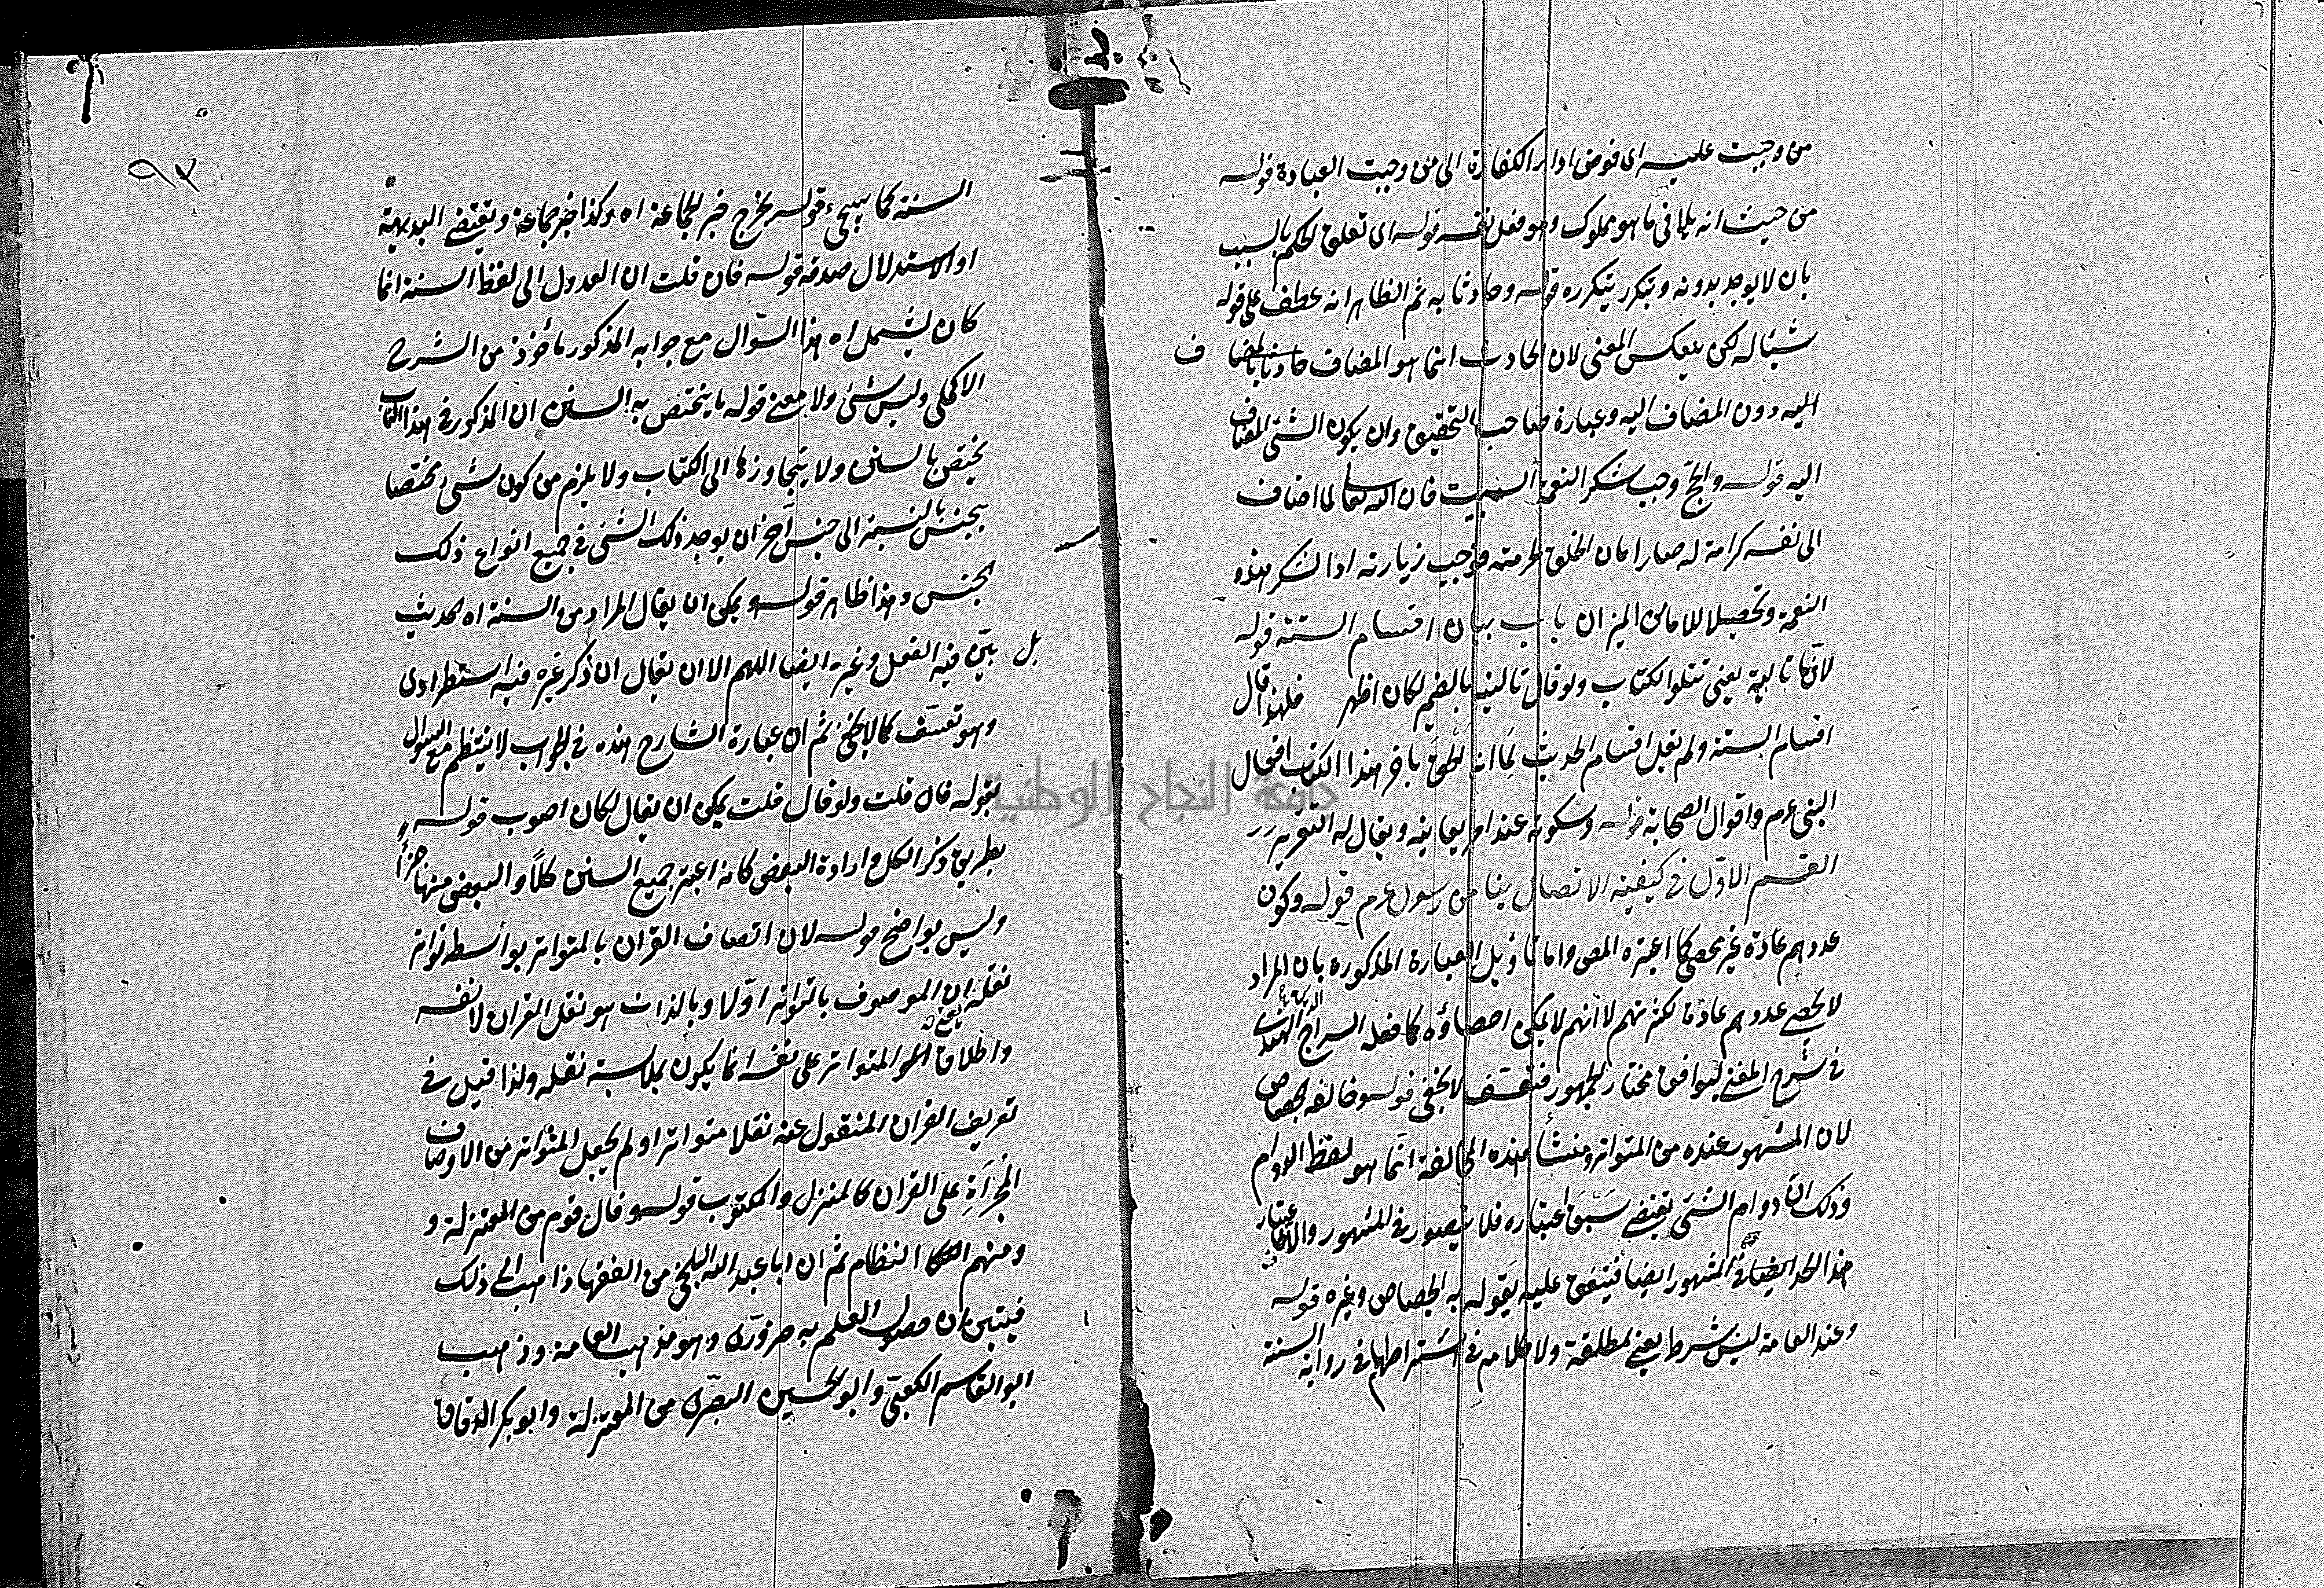 من وجبت عليه اى فوض اداء الكفارة الى من وجبت العبادة قوله
من حيث انه يلاقى ما هو مملوك وهو فعل نفسه قوله اى تعلق الحكم بالسبب
بان لا يوجد بدونه ويتكرر بتكرره قوله وحادثا به ثم الظاهر انه عطف على قوله
شيئا له لكن ينعكس المعنى لان الحادث انما هو المضاف حادثا بالمضاف
اليه دون المضاف اليه وعبارة صاحب التحقيق وان يكون الشئ المضاف
اليه قوله والحج وجب شكر النعمة البيت فان الله تعالى لما اضاف
الى نفسه كرامة له صار امان الخلق لحرمته فوجب زيارته اداء لشكر هذه
النعمة وتحصيلا للامان الميزان باب بيان اقسام السنة قوله
لانها تالية يعنى تتلو الكتاب ولو قال تاليته بالضم لكان اظهر فلهذا قال
اقسام السنة ولم يقل اقسام الحديث لما انه الحق باخر هذا الكتاب افعال
النبى عم واقوال الصحابة قوله وسكوته عند امر يعاينه ويقال له التقرير
القسم الاول فى كيفية الاتصال بنا من رسول عم قوله وكون
عددهم عادة غير محصى كما اعتبره المص واما تأويل العبارة المذكورة بان المراد
لا يحصى عددهم عادة لكثرتهم لا انهم لا يمكن احصاؤه كما فعله السراج الهندى
فى شرح المغنى ليوافق مختار الجمهور فتعسف لا يخفى قوله وخالفه الجصاص
لان المشهور عنده من المتواتر ومنشأ هذه المخالفة انما هو لفظ الدوام
وذلك ان دوام الشئ يقتضى سبق اعتباره فلا يتصور فى المشهور والا
هذا الحد ايضا فى المشهور ايضا فيتفق عليه بقوله به الجصاص وغيره قوله
وعند العامة ليس بشرط يعنى مطلقة ولا كلام فى اشتراطها فى رواية السنة
٩٣
السنة كما سيجئ قوله يخرج خبر الجماعة اه وكذا خبر جماعة ويقتضى البديهية
او الاستدلال صدقه قوله فان قلت ان العدول الى لفظ السنة انما
كان ليشمل اه هذا السؤال مع جوابه المذكور مأخوذ من الشرح
الاكملى وليس بشئ ولا معنى قوله ما يختص به السنن ان المذكور فى هذا الباب
يختص بالسنن ولا يتجاوزها الى الكتاب ولا يلزم من كون شئ مختصا
بجنس بالنسبة الى جنس آخر ان يوجد ذلك الشئ فى جميع انواع ذلك
الجنس وهذا ظاهر قوله ويمكن ان يقال المراد من السنة اه الحديث
بل بين فيه الفعل وغيره ايضا اللهم الا ان يقال ان ذكر غيره فيه استطرادى
وهو تعسف كما لا يخفى ثم ان عبارة الشارح هذه فى الجواب لا ينتظم مع السؤال
بقوله فان قلت ولو قال قلت يمكن ان يقال لكان اصوب قوله
بطريق ذكر الكل وارادة البعض كانه اعتبر جميع السنن كلا والبعض منها جزأ
وليس بواضح قوله لان اتصاف القران بالمتواتر بواسطة تواتر
نقله ان الموصوف بالتواتر اولا وبالذات هو نقل القران لا نفسه
واطلاق المتواتر على نفسه انما يكون بملابسة نقله ولذا قيل فى
تعريف القران المنقول عنه نقلا متواترا ولم يجعل المتواتر من الاوصاف
المجراة على القران كالمنزل والمكتوب قوله وقال قوم من المعتزلة و
ومنهم النظام ثم ان ابا عبد الله البلخى من الفقها ذاهب الى ذلك
فيتبين ان حصول العلم به ضرورى وهو مذهب العامة وذهب
ابو القاسم الكعبى وابو الحسين البصرى من المعتزلة وابو بكر الدقاق
جامعة النجاح الوطنية